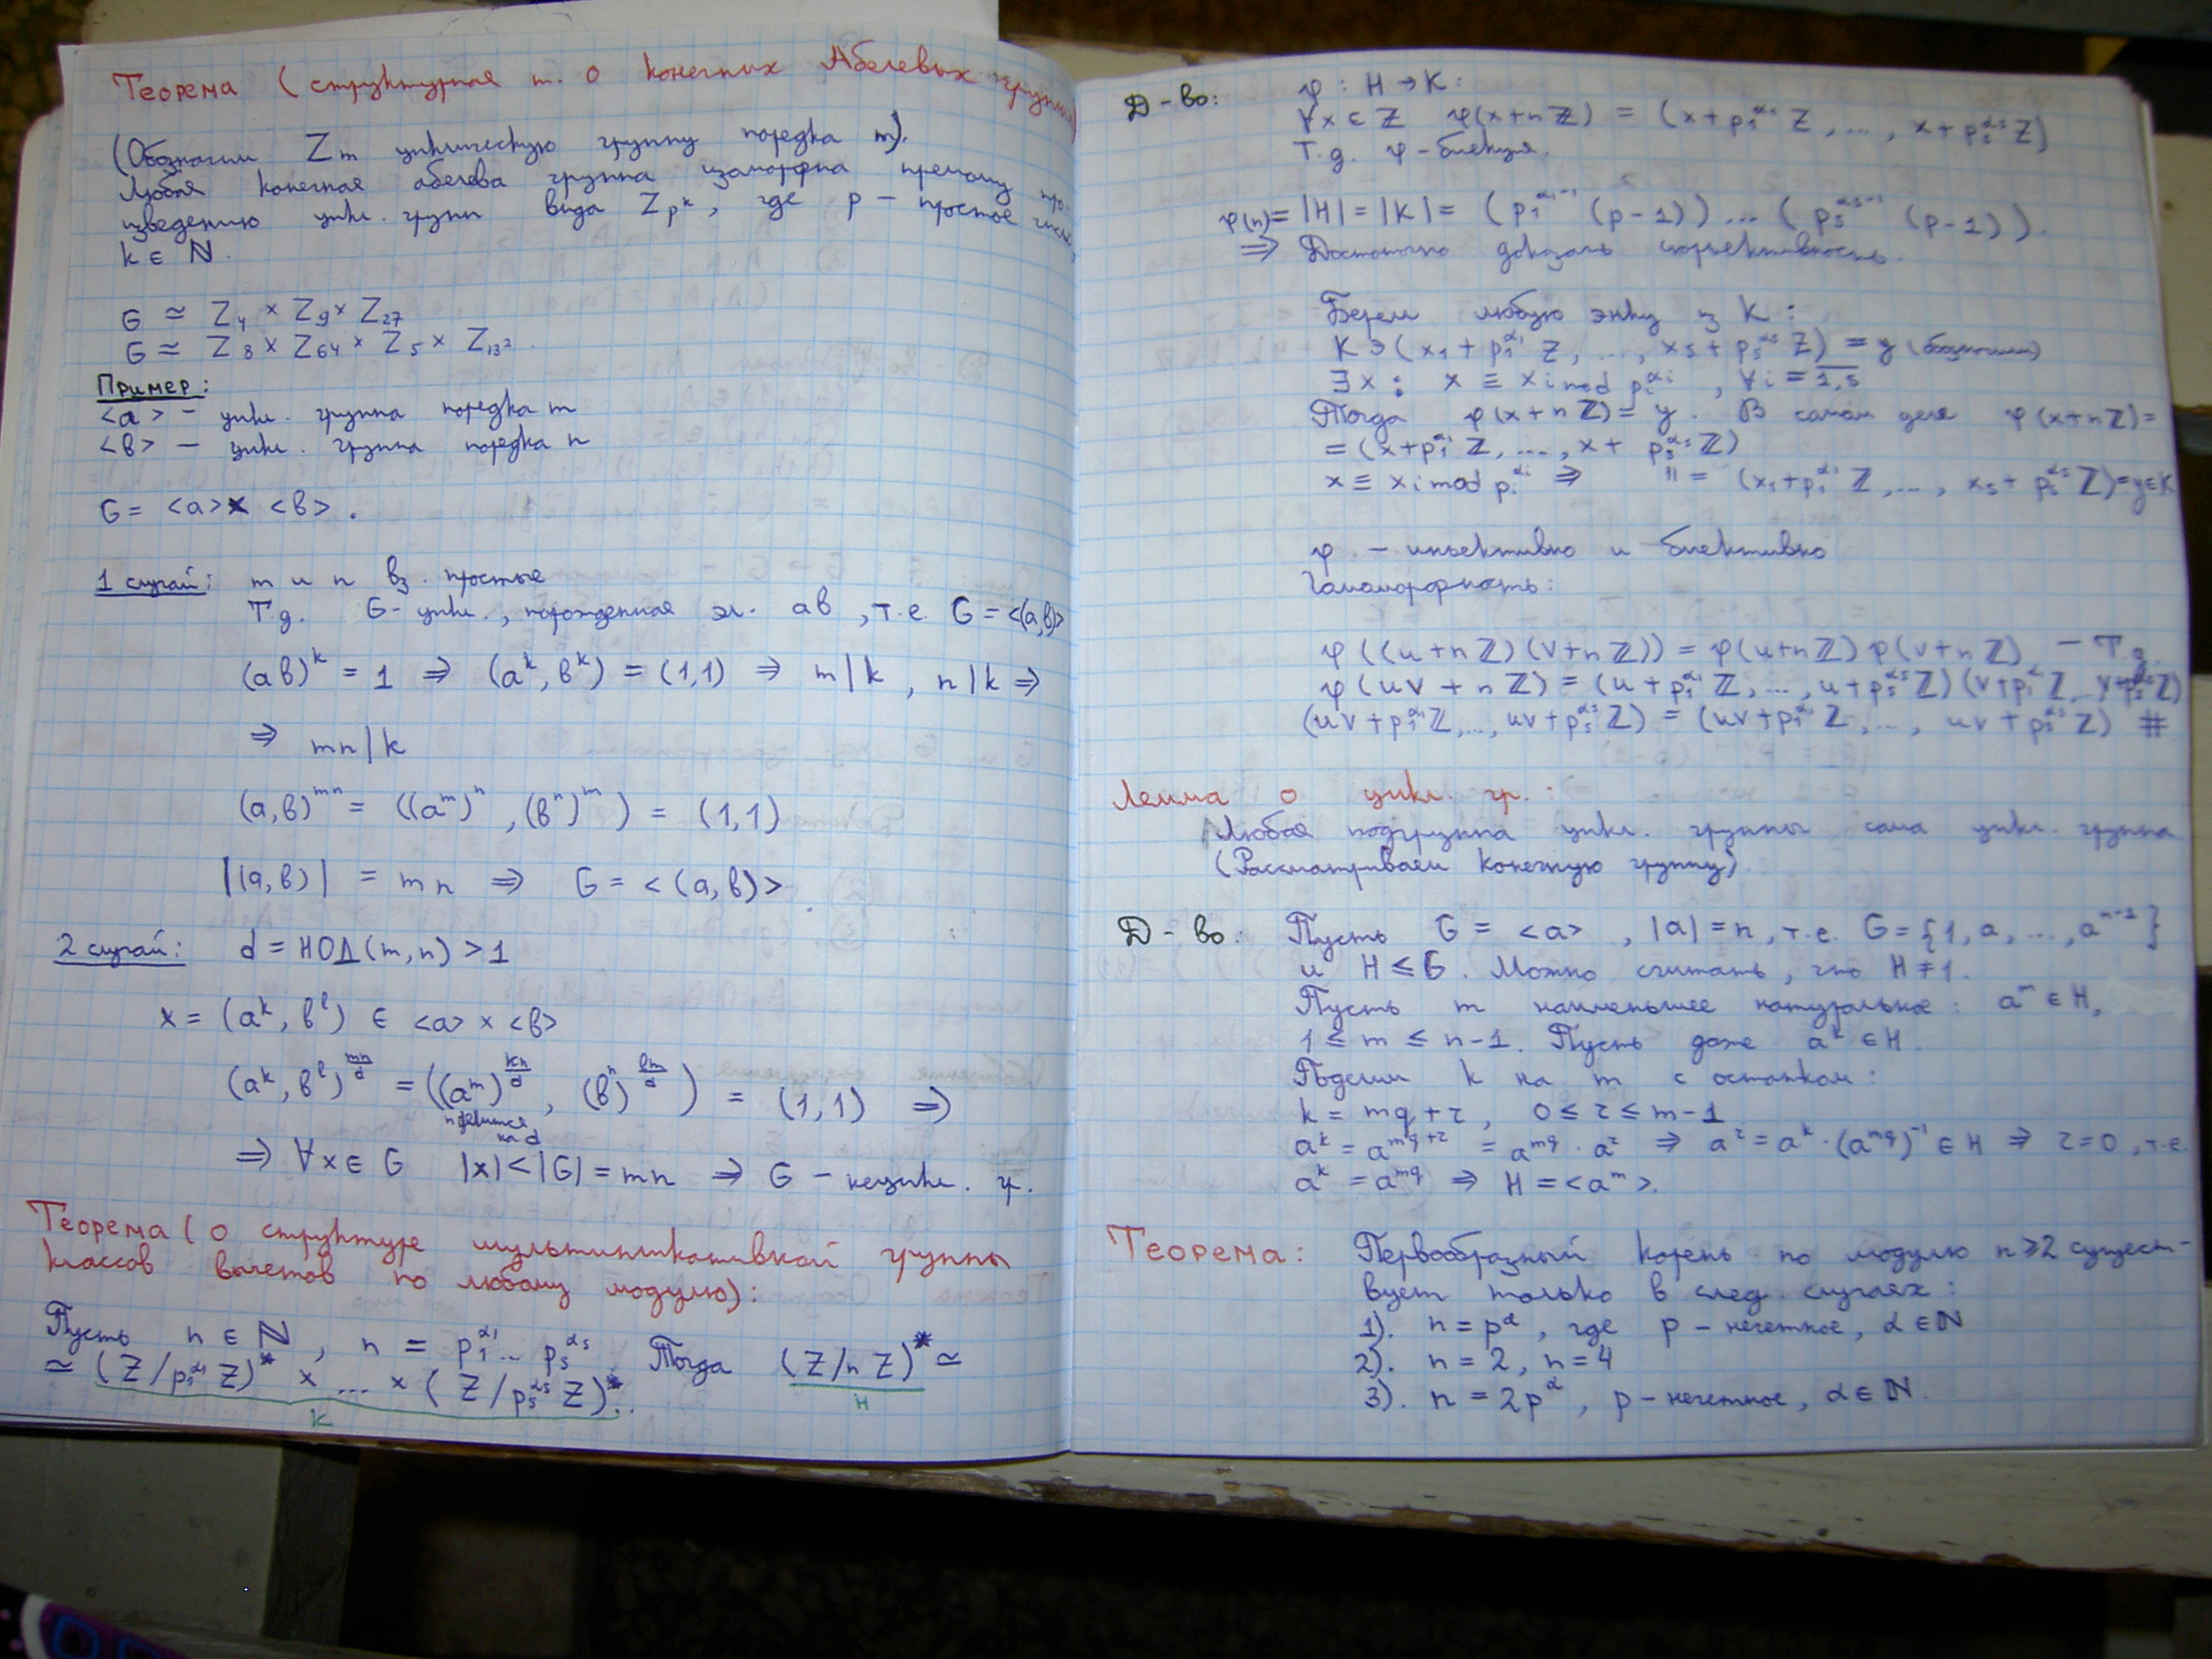 Теорема (структурная т. о конечных Абелевых группах)
(Обозначим Zm циклическую группу порядка m).
Любая конечная абелева группа изоморфна прямому про-
изведению цикл. групп вида Z_{p^k}, где p – простое число,
k ∈ N.
G ≃ Z₄ × Z₉ × Z₂₇
G ≃ Z₈ × Z₆₄ × Z₅ × Z_{13²}.
Пример:
<a> – цикл. группа порядка m
<b> – цикл. группа порядка n
G = <a> × <b>.
1 случай: m и n вз. простые
Т.д. G – цикл., порожденная эл. ab, т.е. G = <(a,b)>
(ab)^k = 1 ⇒ (a^k, b^k) = (1,1) ⇒ m|k, n|k ⇒
⇒ mn|k
(a,b)^{mn} = ((a^m)^n, (b^n)^m) = (1,1)
|(a,b)| = mn ⇒ G = <(a,b)>.
2 случай: d = НОД(m,n) > 1
x = (a^k, b^l) ∈ <a> × <b>
(a^k, b^l)^{mn/d} = ((a^m)^{kn/d}, (b^n)^{lm/d}) = (1,1) ⇒
n делится
на d
⇒ ∀x ∈ G |x| < |G| = mn ⇒ G – нецикл. гр.
Теорема (о структуре мультипликативной группы
классов вычетов по любому модулю):
Пусть n ∈ N, n = p₁^{α₁} ... p_s^{α_s}. Тогда (Z/nZ)* ≃
≃ (Z/p₁^{α₁}Z)* × ... × (Z/p_s^{α_s}Z)*.
K H
Д-во: φ : H → K:
∀x ∈ Z φ(x+nZ) = (x+p₁^{α₁}Z, ..., x+p_s^{α_s}Z)
Т.д. φ – биекция.
φ(n) = |H| = |K| = (p₁^{α₁-1}(p-1)) ... (p_s^{α_s-1}(p-1)).
⇒ Достаточно доказать сюръективность.
Берем любую энку из K:
K ∋ (x₁+p₁^{α₁}Z, ..., x_s+p_s^{α_s}Z) = y (обозначим)
∃x : x ≡ x_i mod p_i^{α_i}, ∀i = 1,s
Тогда φ(x+nZ) = y. В самом деле φ(x+nZ) =
= (x+p₁^{α₁}Z, ..., x+p_s^{α_s}Z)
x ≡ x_i mod p_i^{α_i} ⇒ " = (x₁+p₁^{α₁}Z, ..., x_s+p_s^{α_s}Z) = y ∈ K
φ – инъективно и биективно
Гомоморфность:
φ((u+nZ)(v+nZ)) = φ(u+nZ) φ(v+nZ) – Т.д.
φ(uv+nZ) = (u+p₁^{α₁}Z, ..., u+p_s^{α_s}Z)(v+p₁^{α₁}Z, ... v+p_s^{α_s}Z)
(uv+p₁^{α₁}Z, ..., uv+p_s^{α_s}Z) = (uv+p₁^{α₁}Z, ..., uv+p_s^{α_s}Z) #
Лемма о цикл. гр.:
Любая подгруппа цикл. группы сама цикл. группа
(Рассматриваем конечную группу).
Д-во: Пусть G = <a>, |a| = n, т.е. G = {1, a, ..., a^{n-1}}
и H ≤ G. Можно считать, что H ≠ 1.
Пусть m наименьшее натуральное: a^m ∈ H,
1 ≤ m ≤ n-1. Пусть даже a^k ∈ H.
Поделим k на m с остатком:
k = mq + r, 0 ≤ r ≤ m-1
a^k = a^{mq+r} = a^{mq} · a^r ⇒ a^r = a^k · (a^{mq})^{-1} ∈ H ⇒ r = 0, т.е.
a^k = a^{mq} ⇒ H = <a^m>.
Теорема: Первообразный корень по модулю n ≥ 2 сущест-
вует только в след. случаях:
1). n = p^α, где p – нечетное, α ∈ N
2). n = 2, n = 4
3). n = 2p^α, p – нечетное, α ∈ N.